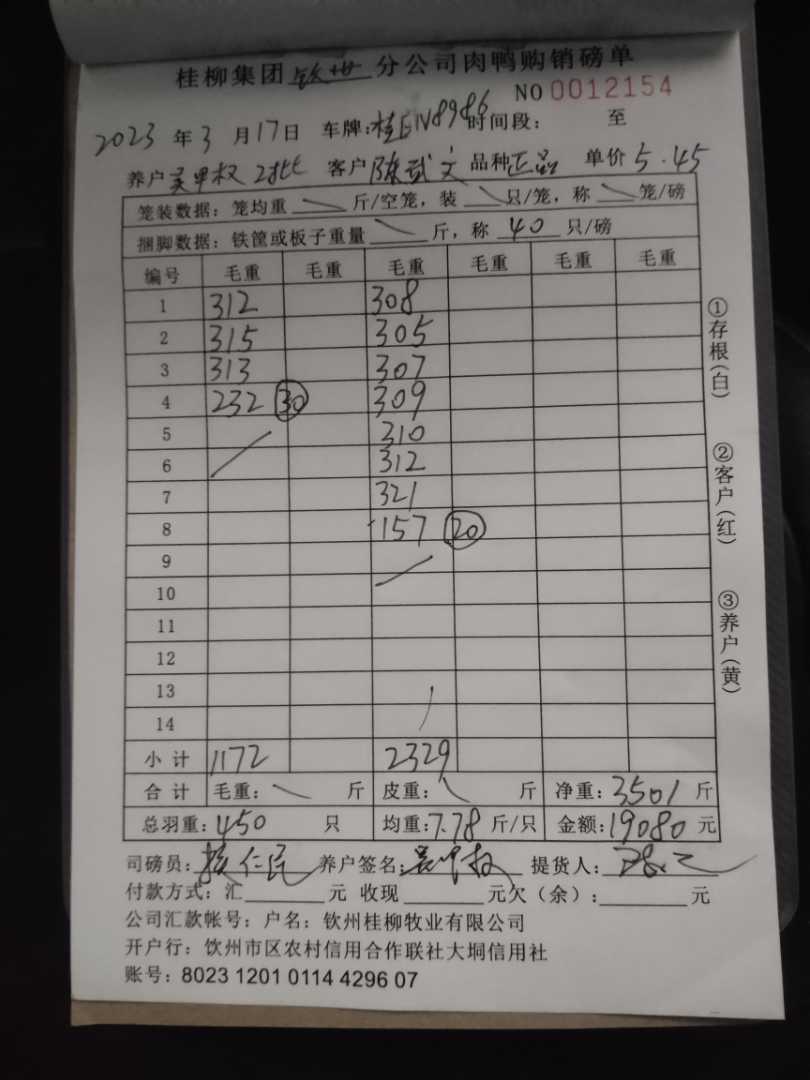 桂柳集团 钦州 分公司肉鸭购销磅单
NO 0012154
2023 年 3 月 17 日 车牌: 桂EN8986 时间段: 至
养户 吴甲权 2批 客户 陈武文 品种 正品 单价 5.45
笼装数据: 笼均重 \ 斤/空笼, 装 \ 只/笼, 称 \ 笼/磅
捆脚数据: 铁筐或板子重量 \ 斤, 称 40 只/磅
编号 毛重 毛重 毛重 毛重 毛重 毛重
1 312 308
2 315 305
3 313 307
4 232 30 309
5 310
6 312
7 321
8 157 20
9
10
11
12
13
14
小计 1172 2329
合计 毛重: \ 斤 皮重: \ 斤 净重: 3501 斤
总羽重: 450 只 均重: 7.78 斤/只 金额: 19080 元
司磅员: 仁 养户签名: 吴甲权 提货人:
付款方式: 汇 元 收现 元欠(余): 元
公司汇款帐号: 户名: 钦州桂柳牧业有限公司
开户行: 钦州市区农村信用合作联社大垌信用社
账号: 8023 1201 0114 4296 07
①存根(白)
②客户(红)
③养户(黄)